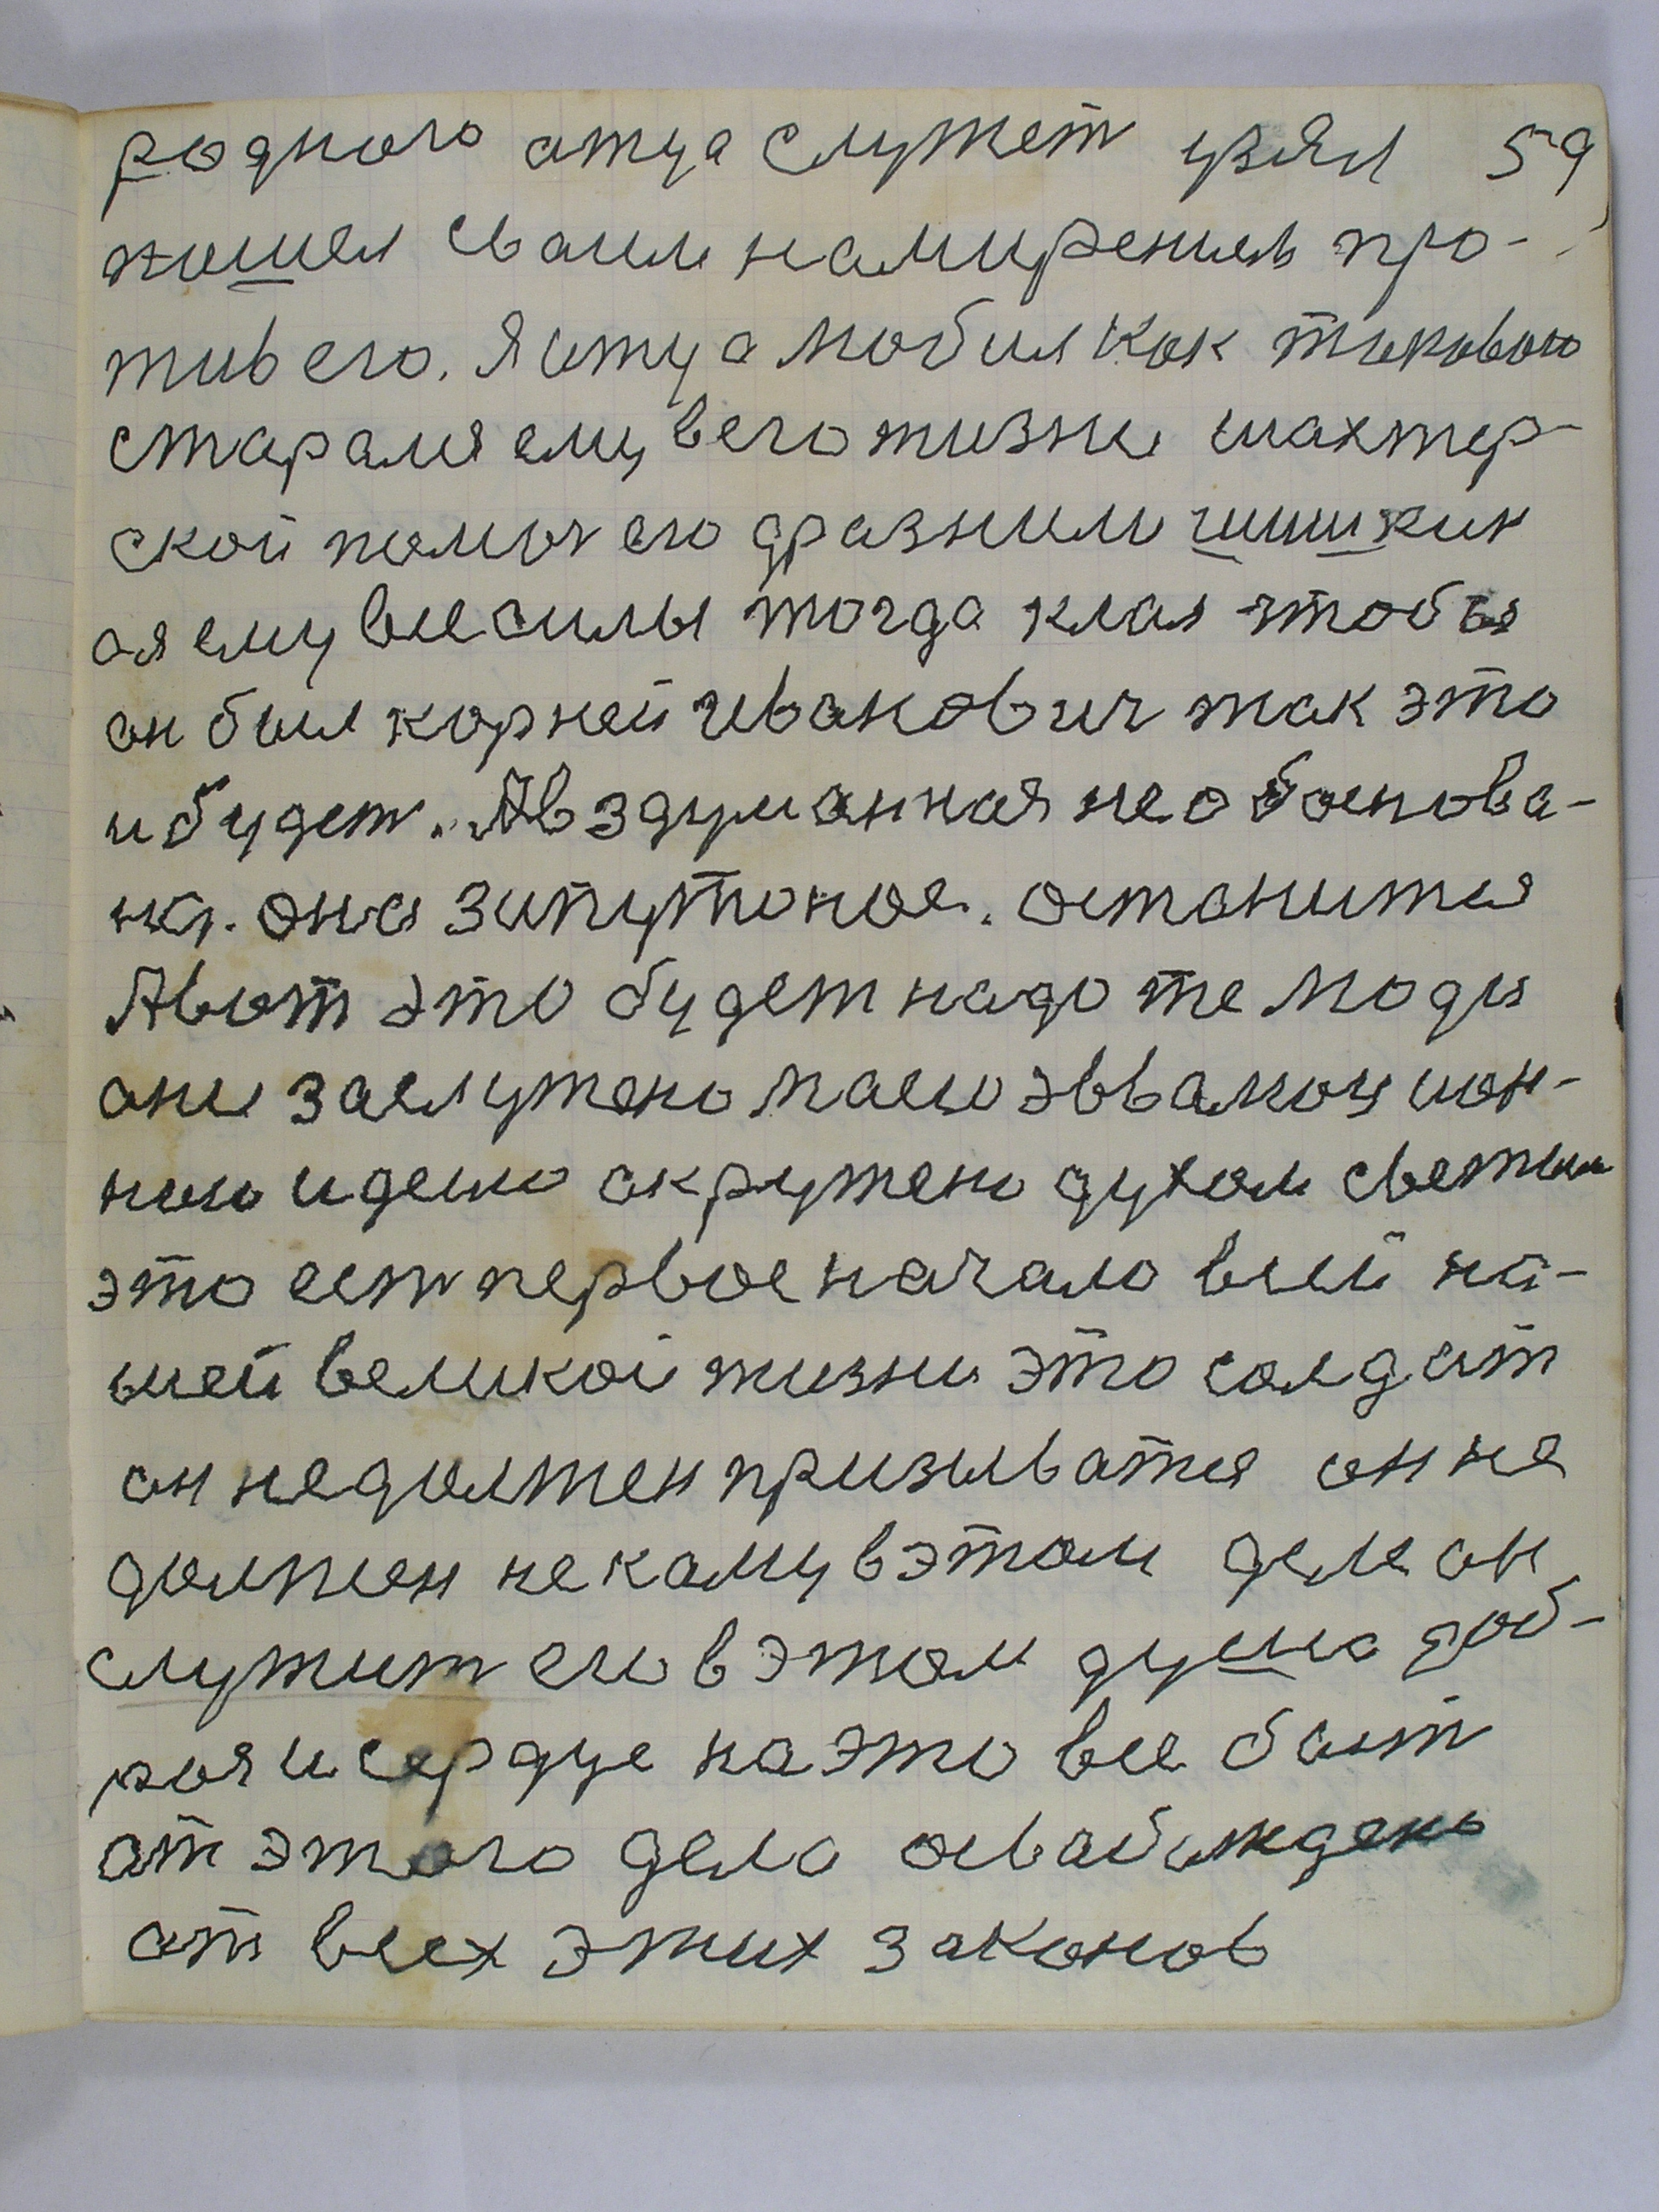 родного отца служет узял 59
пошел сваим намирением про-
тив его. Я отца любил как такового
старался ему в его жизни шахтер-
ской помоч его дразнили шишкин
а я ему все силы тогда клал чтобы
он был корней иванович так это
и будет. А вздуманная не обоснова-
на. она запутоное. останится
А вот это будет надо те люди
они заслужено твоею эвалюцион-
ною идею окружено духом светым
это ест первое начало всей на-
шей великой жизни это солдат
он не должен призыватся он не
должен некаму в этом деле он
служит его в этом душа доб-
рая и сердце на это все бьит
от этого дела освабождено
от всех этих законов